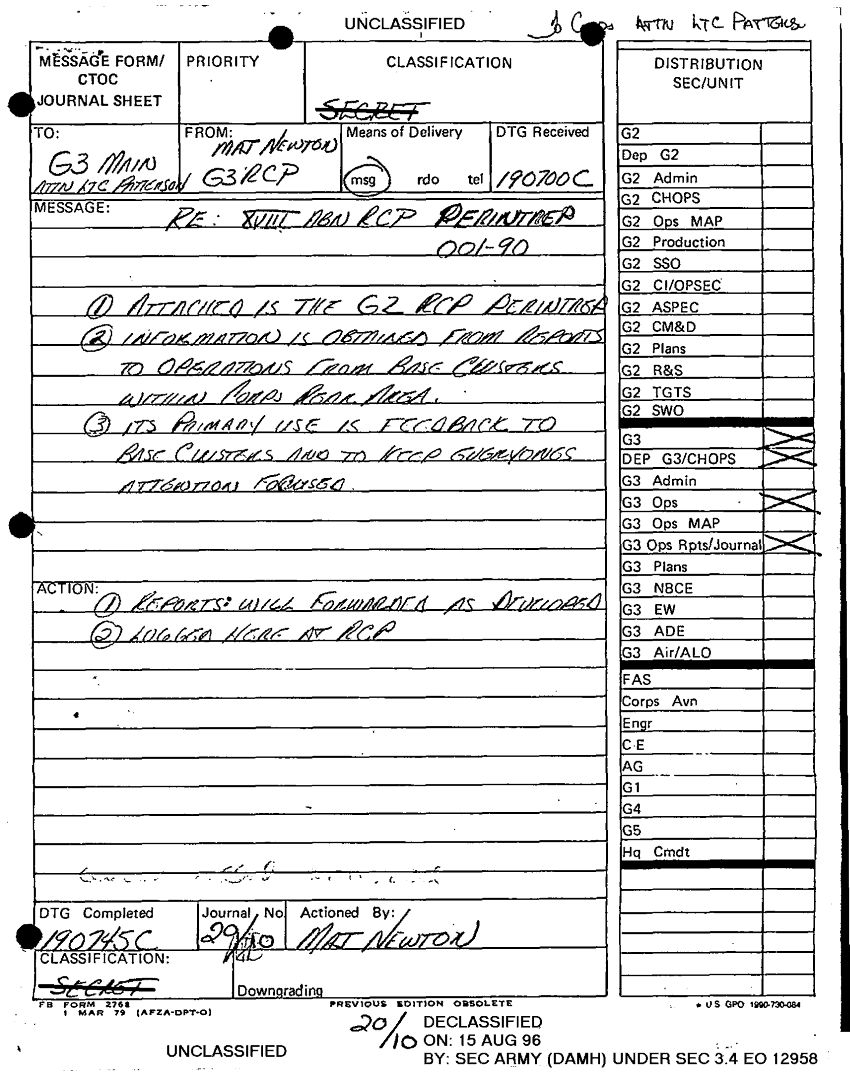 UNCLASSIFIED
ATTN LTC PATTERSON
MESSAGE FORM/
CTOC
JOURNAL SHEET
PRIORITY
CLASSIFICATION
SECRET
TO:
G3 MAIN
ATTN LTC PATTERSON
FROM:
MAT NEWTON
G3 RCP
Means of Delivery
msg rdo tel
DTG Received
190700C
MESSAGE:
RE: XVIII ABN RCP PERINTREP
001-90
① ATTACHED IS THE G2 RCP PERINTREP
② INFORMATION IS OBTAINED FROM REPORTS
TO OPERATIONS FROM BASE CLUSTERS
WITHIN CORPS REAR AREA.
③ ITS PRIMARY USE IS FEEDBACK TO
BASE CLUSTERS AND TO KEEP EVERYONES
ATTENTION FOCUSED.
ACTION:
① REPORTS WILL FORWARDED AS DEVELOPED
② LOGGED HERE AT RCP
DTG Completed
190745C
Journal No
29/10
Actioned By:
MAT NEWTON
CLASSIFICATION:
SECRET
Downgrading
FB FORM 2768
1 MAR 79 (AFZA-DPT-O)
PREVIOUS EDITION OBSOLETE
* US GPO 1990-730-084
DISTRIBUTION
SEC/UNIT
G2
Dep G2
G2 Admin
G2 CHOPS
G2 Ops MAP
G2 Production
G2 SSO
G2 CI/OPSEC
G2 ASPEC
G2 CM&D
G2 Plans
G2 R&S
G2 TGTS
G2 SWO
G3
DEP G3/CHOPS
G3 Admin
G3 Ops
G3 Ops MAP
G3 Ops Rpts/Journal
G3 Plans
G3 NBCE
G3 EW
G3 ADE
G3 Air/ALO
FAS
Corps Avn
Engr
C-E
AG
G1
G4
G5
Hq Cmdt
20/10
UNCLASSIFIED
DECLASSIFIED
ON: 15 AUG 96
BY: SEC ARMY (DAMH) UNDER SEC 3.4 EO 12958